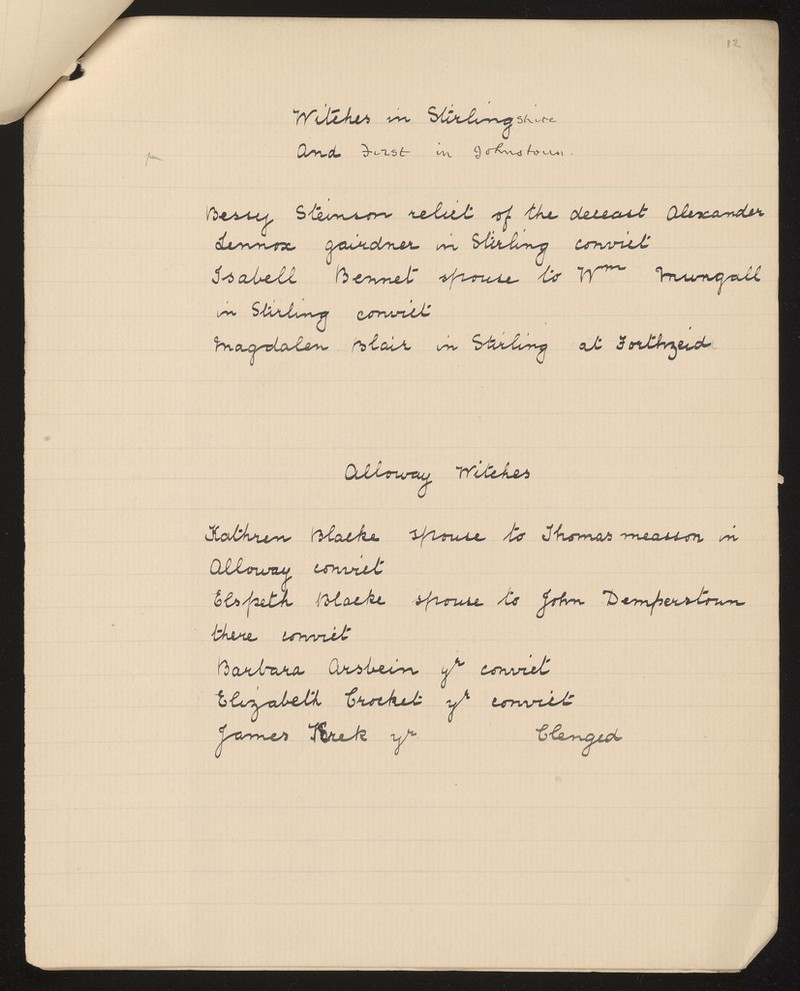 12
Witches in Stirlingshire
And First in Johnstoun.
Bessy Steinson relict of the deceast Alexander
Lennox gairdner in Stirling convict
Isabell Bennet spouse to Wm Mungall
in Stirling convict
Magdalen Blair in Stirling at Forthzeid
Alloway Witches
Kathren Blacke spouse to Thomas measson in
Alloway convict
Elspeth Blacke spouse to John Demperstoun
there convict
Barbara Arsbein yr convict
Elizabeth Crocket yr convict
James Krek yr Clenged